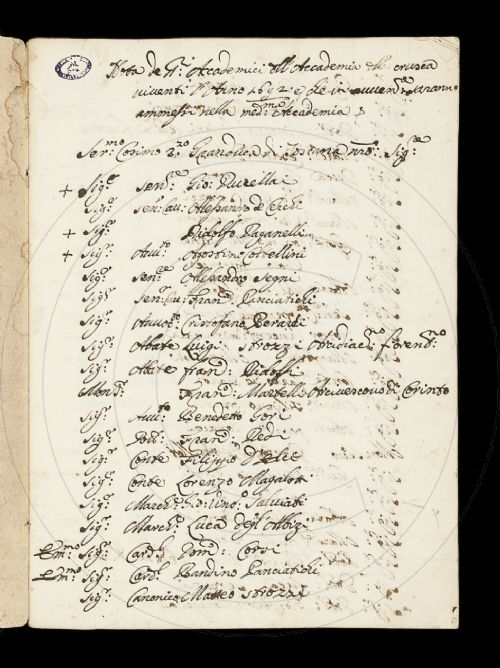 Nota de SS.ri Accademici dell'Accademia della crusca
viventi l'Anno 1692: e che in avvenire saranno
ammessi nella med:ma Accademia
Ser:mo Cosimo 3:zo Granduca di Toscana nro: Sig:re
+ Sig:re Sen:re Gio: Rucellai
Sig:r Sen: Cav: Alessandro de Cerchi
+ Sig:r Ridolfo Paganelli
+ Sig:r Avv:to Agostino Coltellini
Sig:r Sen:re Alessandro Segni
Sig:r Sen: Cav: Fran:o Panciatichi
Sig:r Auuot:o Cristofano Berardi
Sig:r Abate Luigi Strozzi Arcidiac:no fiorent:no
Sig:r Abate Fran:o Ridolfi
Mons:r Fran:o Martelli Arcivescovo di Corinto
Sig:r Aud:re Benedetto Gori
Sig:r Dott: Fran:o Redi
Sig:r Conte Filippo d'Elci
Sig:r Conte Lorenzo Magalotti
Sig:r March:e Gio: Vinc:o Salviati
Sig:r March:e Luca degl'Albizi
Em:mo Sig:r Card:l Dom:o: Corsi
Em:mo Sig:r Card:l Bandino Panciatichi
Sig:r Canonico Matteo Strozzi